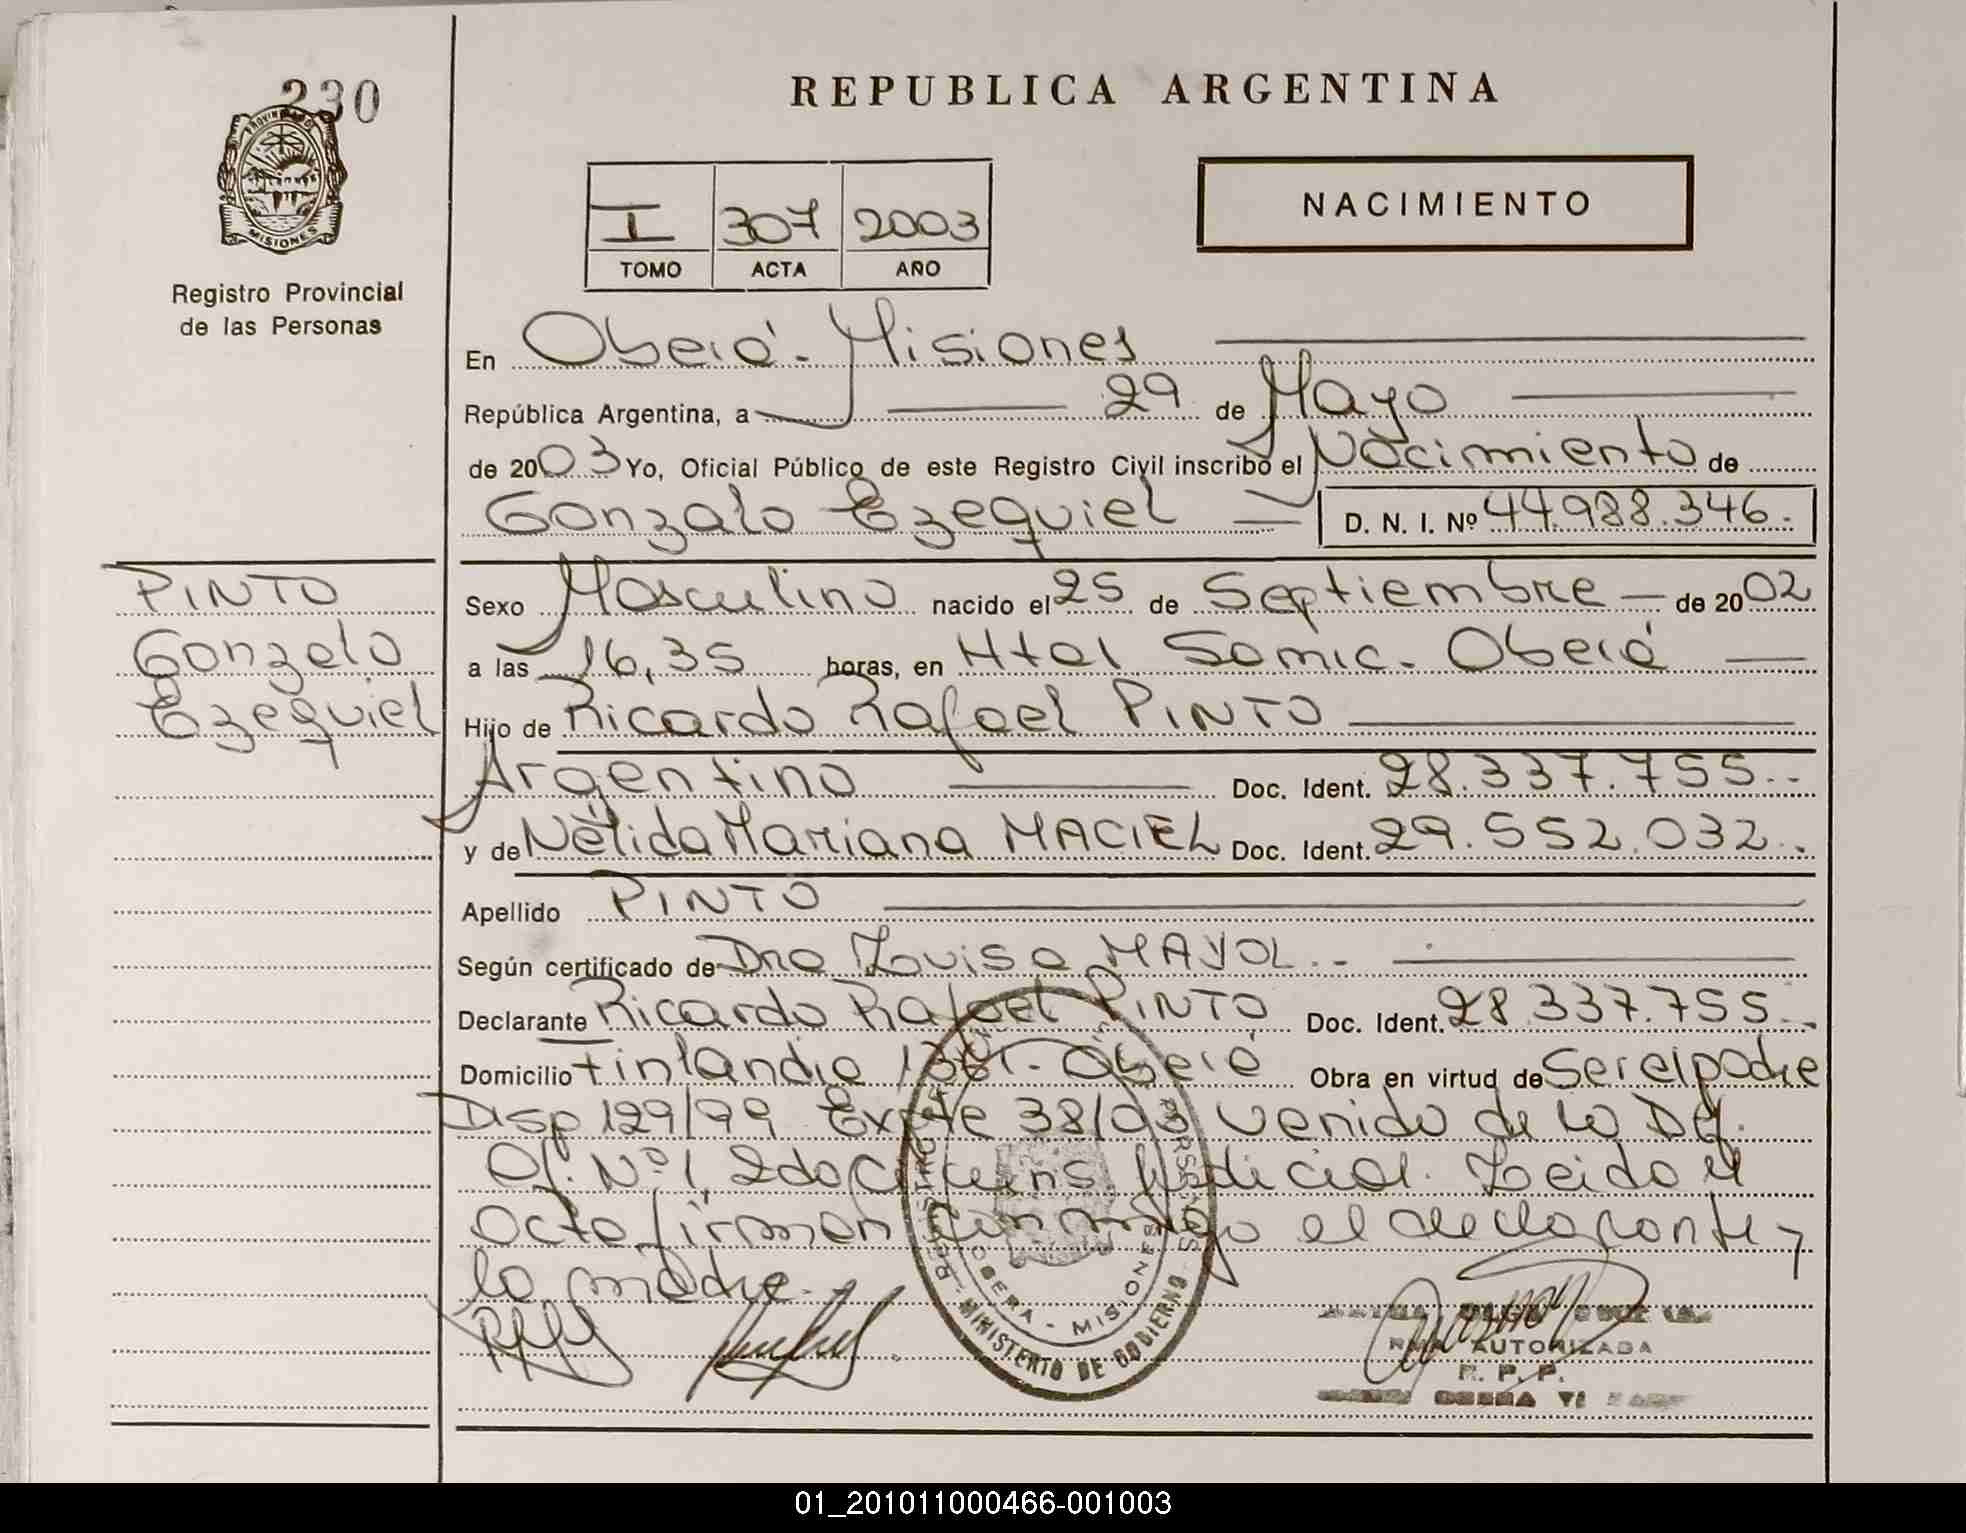 230
REPUBLICA ARGENTINA
PROVINCIA DE MISIONES
Registro Provincial
de las Personas
I 307 2003
TOMO ACTA AÑO
NACIMIENTO
En Oberá - Misiones
República Argentina, a 29 de Mayo
de 2003 Yo, Oficial Público de este Registro Civil inscribo el Nacimiento de
Gonzalo Ezequiel D. N. I. Nº 44.988.346.
PINTO
Gonzalo
Ezequiel
Sexo Masculino nacido el 25 de Septiembre de 2002
a las 16,35 horas, en Htal Samic. Oberá
Hijo de Ricardo Rafael PINTO
Argentino Doc. Ident. 28.337.755..
y de Nélida Mariana MACIEL Doc. Ident. 29.552.032..
Apellido PINTO
Según certificado de Dra Luisa MAYOL..
Declarante Ricardo Rafael PINTO Doc. Ident. 28.337.755..
Domicilio Finlandia - Oberá Obra en virtud de Ser el padre
Disp 129/99 Expte 38/03 venido de la
Of. Nº 1, 2da Circuns. Judicial. Leido el
acta firman conmigo el declarante y
la madre.
REGISTRO PERSONAS
OBERA - MISIONES
MINISTERIO DE GOBIERNO
AUTORIZADA
R. P. P.
01_201011000466-001003